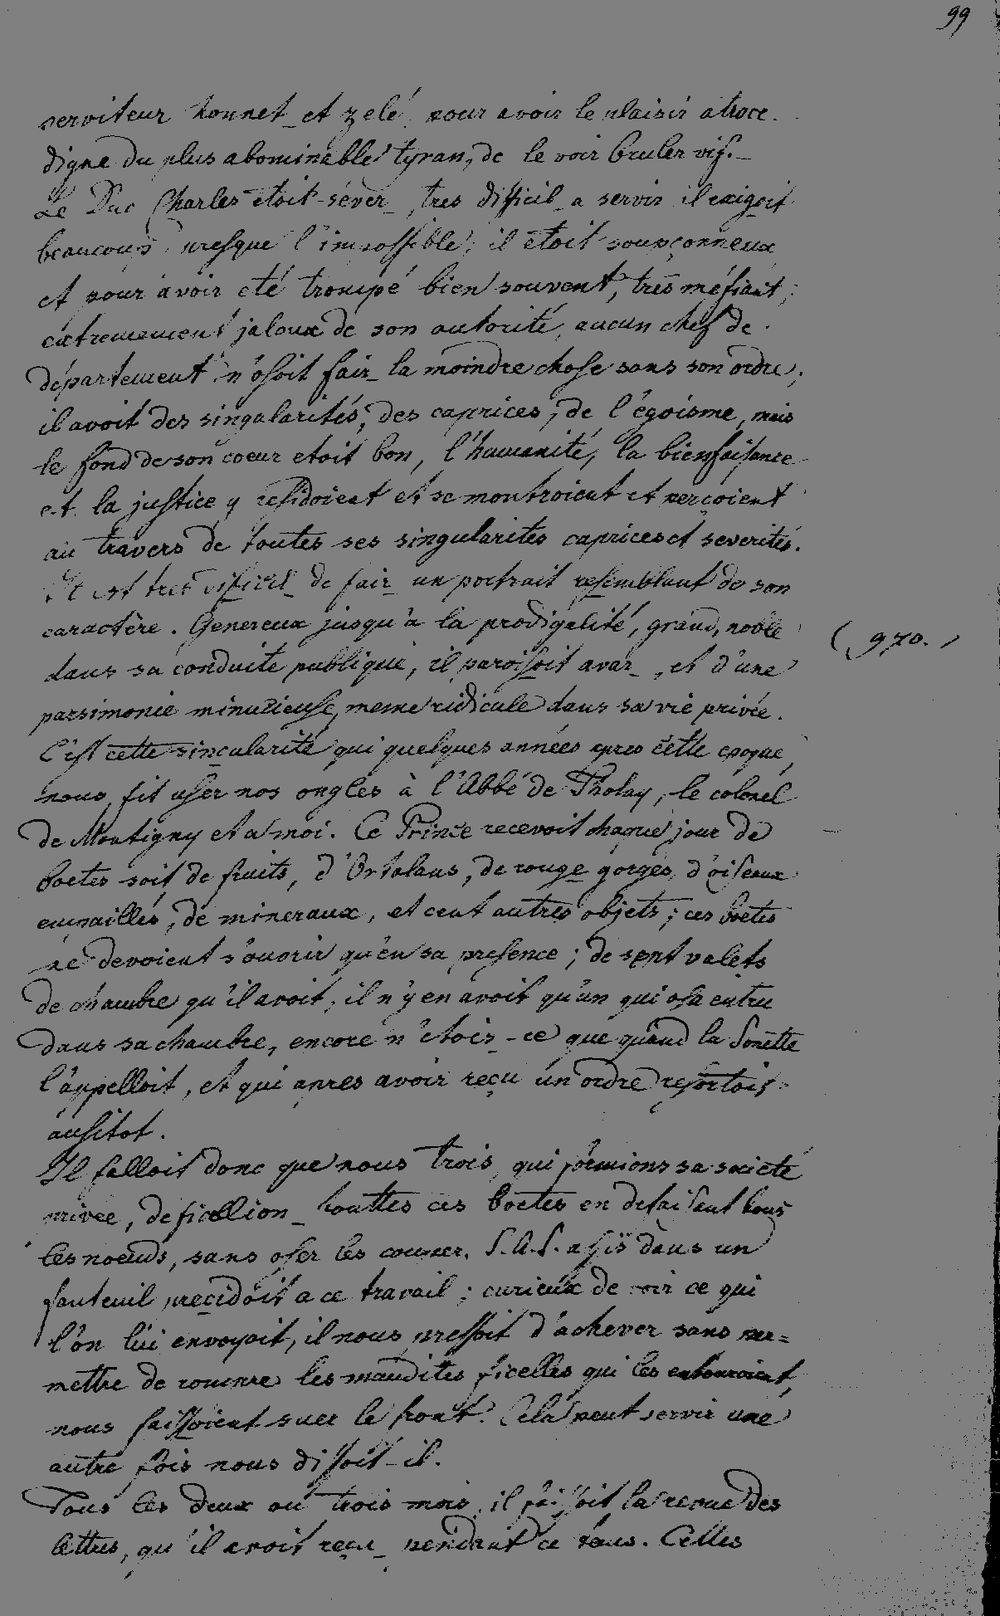 99
serviteur honnet et zelé pour avoir le plaisir atroce
digne du plus abominable tyran, de le voir bruler vif.
Le Duc Charles étoit séver, tres difficil a servir il exigoit
beaucoup presque l'impossible; il étoit soupçonneux
et pour avoir eté trompé bien souvent, très méfiant;
extremement jaloux de son autorité, aucun chef de
département n'osoit fair la moindre chose sans son ordre;
il avoit des singularités, des caprices, de l'égoisme, mais
le fond de son coeur etoit bon, l'humanité, la bienfaisance
et la justice y residoient et se montroient et percoient
au travers de toutes ses singularités caprices et severités.
Il est tres dificil de fair un portrait resemblant de son
caractère. Genereux jusqu'à la prodigalité, grand, noble
(970.)
dans sa conduite publique, il paroissoit avar, et d'une
parsimonie minutieuse, meme ridicule dans sa vie privée.
C'est cette singularité qui quelques années apres cette epoque,
nous fit user nos ongles à l'Abbé de Tholay, le colonel
de Montigny et a moi. Ce Prince recevoit chaque jour de
boetes soit de fruits, d'Ortolans, de rouge gorges, d'oiseaux
empaillés, de mineraux, et cent autres objets; ces boetes
ne devoient s'ouvrir qu'en sa presence; de sept valets
de chambre qu'il avoit, il n'y en avoit qu'un qui osa entrer
dans sa chambre, encore n'étois-ce que quand la sonette
l'appelloit, et qui apres avoir reçu un ordre resortois
ausitot.
Il falloit donc que nous trois, qui formions sa societé
privée, deficellion touttes ces boetes en defaisant tous
les noeuds, sans oser les couper. S.A.S. assis dans un
fauteuil precidoit a ce travail; curieux de voir ce qui
l'on lui envoyoit, il nous pressoit d'achever sans per=
mettre de rompre les maudites ficelles qui les entouroient,
nous faissoient suer le front. Cela peut servir une
autre fois nous dissoit-il.
Tous les deux ou trois mois, il faisoit la revue des
lettres, qu'il avoit reçu pendant ce tems. Celles